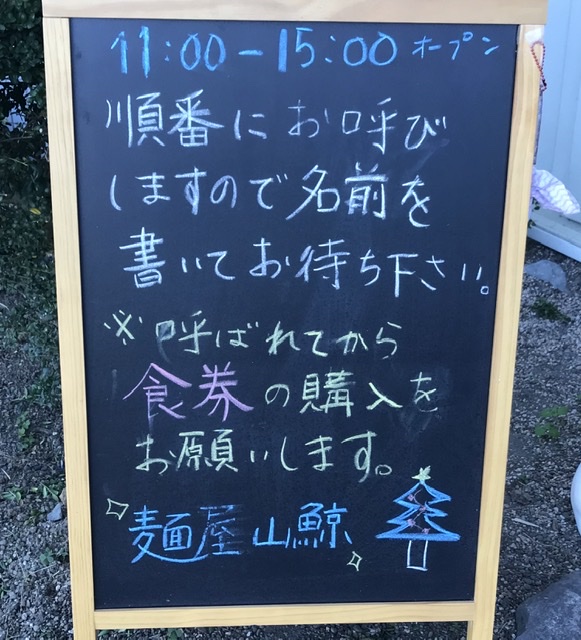 11:00-15:00 オープン
順番にお呼び
しますので名前を
書いてお待ち下さい。
※呼ばれてから
食券の購入を
お願いします。
麺屋山鯨